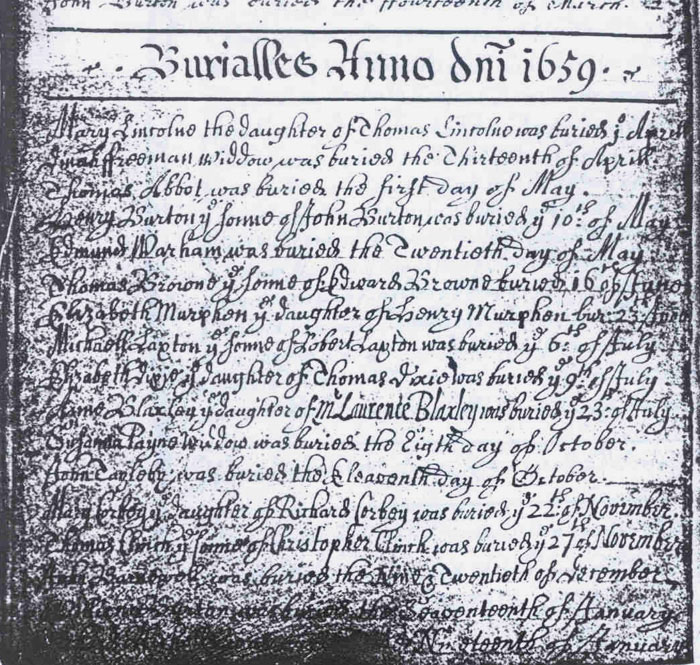 John Burton was buried the fourteenth of March.
Burialles Anno dni 1659.
Mary Lincolne the daughter of Thomas Lincolne was buried ye Aprill
ffreeman Widdow was buried the Thirteenth of Aprill
Thomas Abbot was buried the first day of May.
Henry Burton ye sonne of John Burton was buried ye 10th of May
Edmund Warham was buried the Twentieth day of May.
Thomas Browne ye sonne of Edward Browne buried 16 of June
Elizabeth Murphen ye daughter of Henry Murphen bur: 23
Michaell Laxton ye sonne of Robert Laxton was buried ye 6th of July
Elizabeth Dixie ye daughter of Thomas Dixie was buried ye 9th of July
Anne Blaxley ye daughter of Mr Laurence Blaxley was buried ye 23th of July
Susanna Payne Widow was buried the Eigth day of October.
John was buried the Eleaventh day of October.
Mary Corbey ye daughter of Richard Corbey was buried ye 22th of November
Thomas Clinch ye sonne of Christopher Clinck was buried ye 27th of November
was buried the Nine & Twentieth of December
was buried the Seaventeenth of January
Nineteenth of January